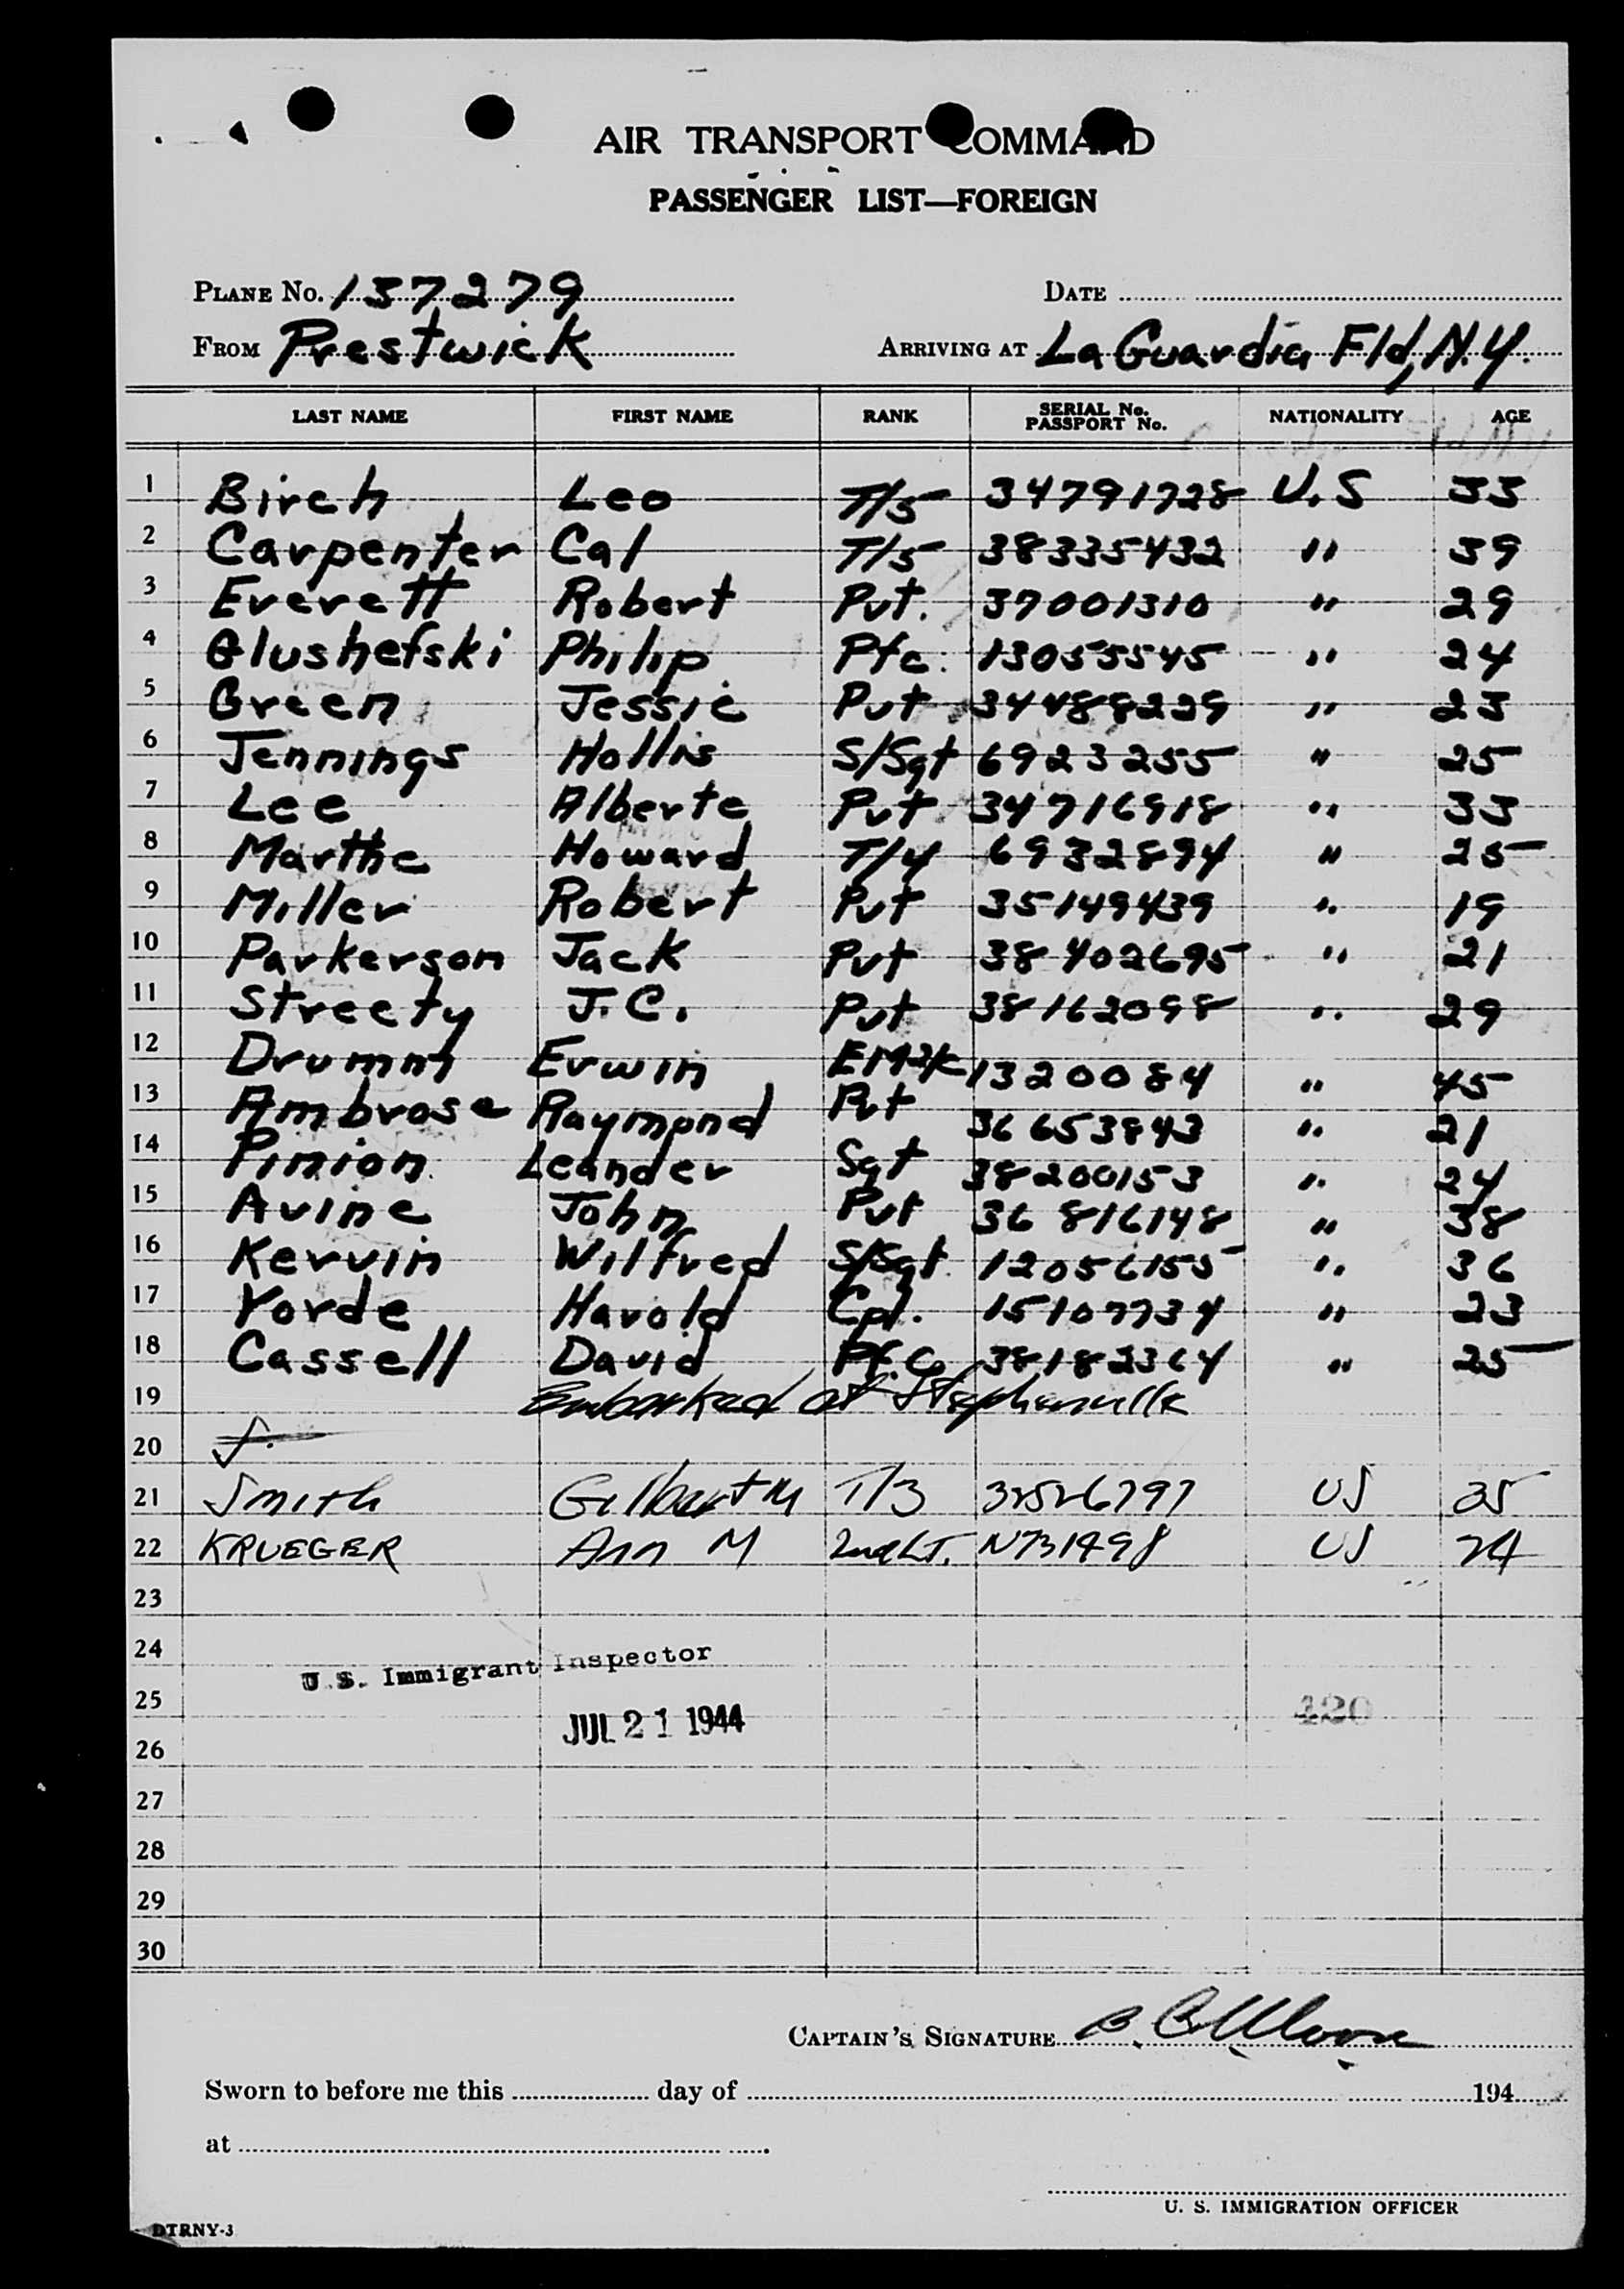 AIR TRANSPORT COMMAND
PASSENGER LIST—FOREIGN
PLANE No. 137279 DATE
FROM Prestwick ARRIVING AT La Guardia Fld, N.Y.
LAST NAME FIRST NAME RANK SERIAL No. PASSPORT No. NATIONALITY AGE
1 Birch Leo T/5 34791728 U.S 33
2 Carpenter Cal T/5 38335432 " 39
3 Everett Robert Pvt. 37001310 " 29
4 Glushefski Philip Pfc. 13055545 " 24
5 Green Jessie Pvt 34488229 " 23
6 Jennings Hollis S/Sgt 6923255 " 25
7 Lee Alberte Pvt 34716918 " 33
8 Marthe Howard T/4 6932894 " 25
9 Miller Robert Pvt 35149439 " 19
10 Parkerson Jack Pvt 38402695 " 21
11 Streety J.C. Pvt 38162098 " 29
12 Drumm Erwin EM2/c 1320084 " 45
13 Ambrose Raymond Pvt 36653843 " 21
14 Pinion Leander Sgt 38200153 " 24
15 Avine John Pvt 36816148 " 38
16 Kervin Wilfred S/Sgt. 12056155 " 36
17 Yorde Harold Cpl. 15107734 " 23
18 Cassell David Pfc 38182364 " 25
19 Embarked at Stephenville
20 S.
21 Smith Gilbert M T/3 32526797 US 25
22 KRUEGER Ann M 2nd LT. N731498 US 24
23
24
U.S. Immigrant Inspector
25 420
JUL 21 1944
26
27
28
29
30
CAPTAIN'S SIGNATURE
Sworn to before me this day of 194
at
U. S. IMMIGRATION OFFICER
DTRNY-3